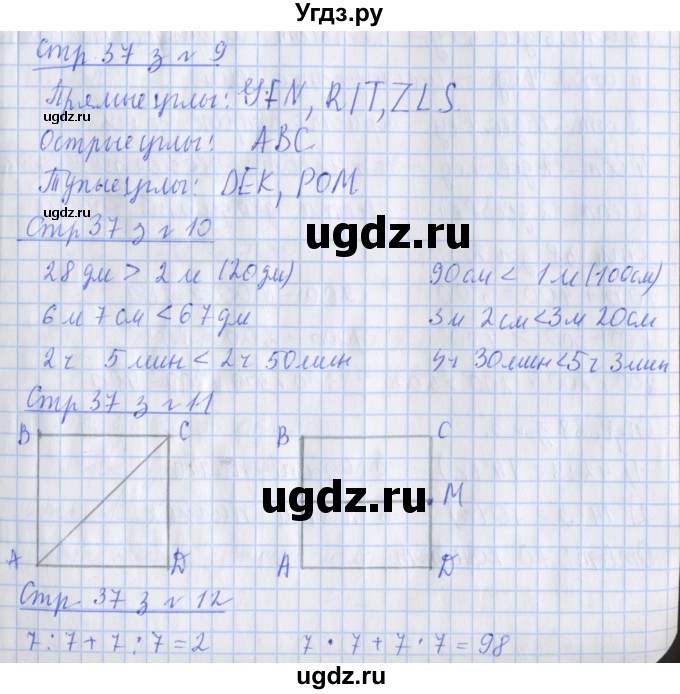 Угдз.ру
Стр 37 з № 9
Прямые углы: YFN, RIT, ZLS.
Острые углы: ABC
Тупые углы: DEK, POM
ugdz.ru
ugdz.ru
Стр 37 з № 10
28 дм > 2 м (20 дм) 90 см < 1 м (100 см)
6 м 7 см < 67 дм 3 м 2 см < 3 м 20 см
2 ч 5 мин < 2 ч 50 мин 30 мин < 5 ч 3 мин
Стр 37 з № 11
B C B C
ugdz.ru M
A D A D
Стр 37 з № 12
7 : 7 + 7 : 7 = 2 7 · 7 + 7 · 7 = 98
ugdz.ru ugdz.ru